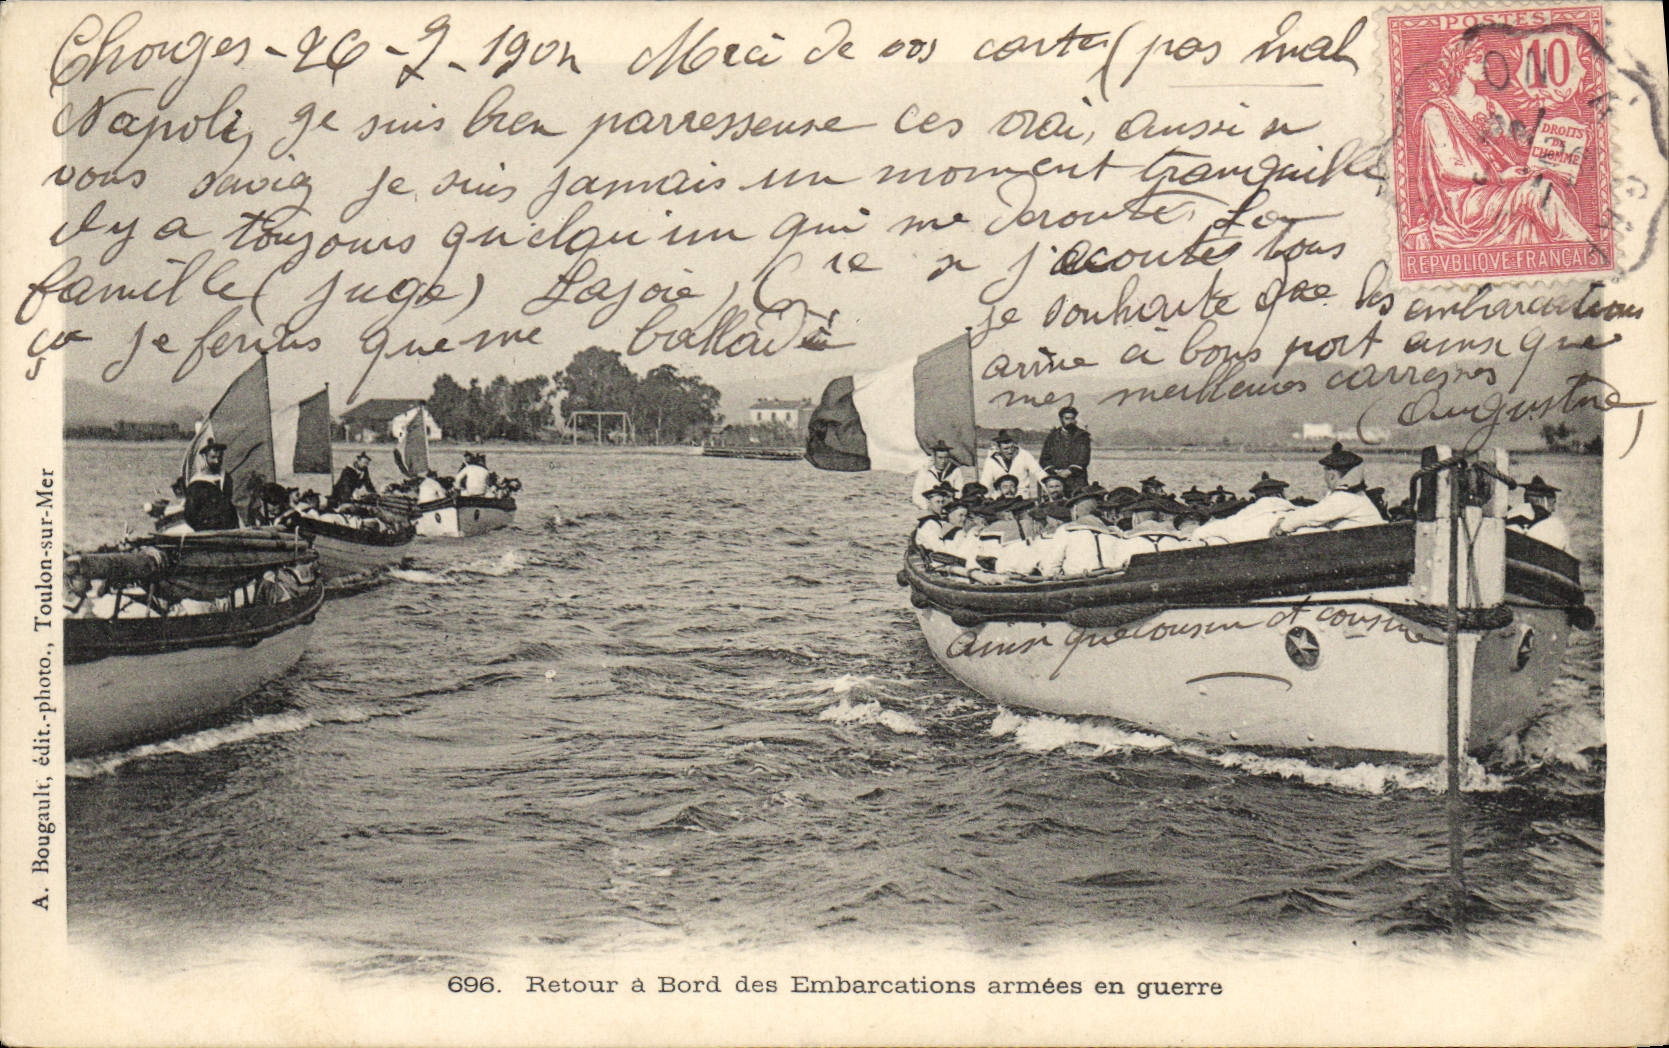 Chorges - 26 - 9 - 1904 Merci de vos cartes (pas mal
Napoli, je suis bien parresseuse ces vrai, aussi si
vous saviez je suis jamais un moment tranquille
il y a toujours quelqu'un qui me deroute. La
famille (juge) Lajoie, ( si j'acoutes tous
ça je ferius que me balladè
je souhaite que les embarcations
arrive à bons port ainsi que
mes meilleures carresses
(Augustine)
ainsi que cousin et cousine
POSTES
10
DROITS
DE
L'HOMME
REPVBLIQVE FRANÇAISE
A. Bougault, édit.-photo., Toulon-sur-Mer
696. Retour à Bord des Embarcations armées en guerre